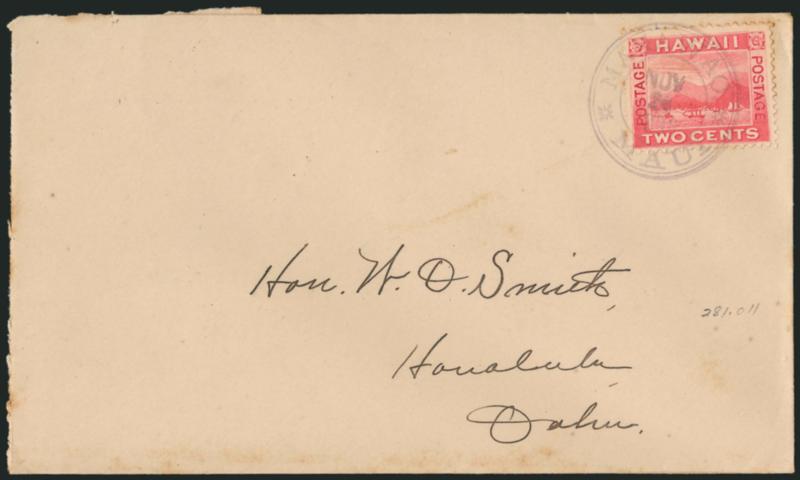 HAWAII
POSTAGE
POSTAGE
TWO CENTS
MAKAWAO
NOV
MAUI
Hon. W. O. Smith,
Honolulu
Oahu.
281.011